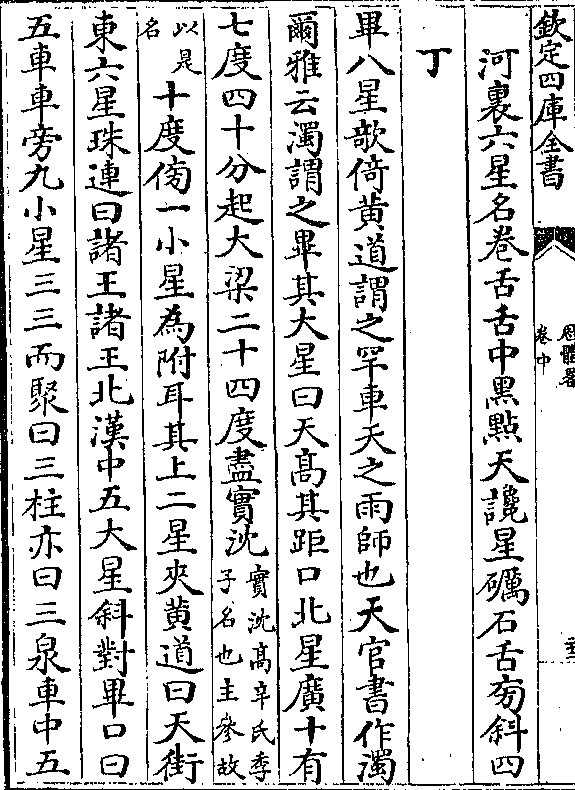 欽定四庫全書
圜體器
卷中
河裏六星名卷舌舌中黑點天讒星礪石舌旁斜四
丁
畢八星歌倚黄道謂之罕車天之雨師也天官書作濁
爾雅云濁謂之畢其大星曰天髙其距口北星廣十有
七度四十分起大梁二十四度盡實沈實沈髙辛氏季子名也主參故
以是名十度傍一小星為附耳其上二星夾黄道曰天街
東六星珠連曰諸王諸王北漢中五大星斜對畢口曰
五車車旁九小星三三而聚曰三柱亦曰三泉車中五